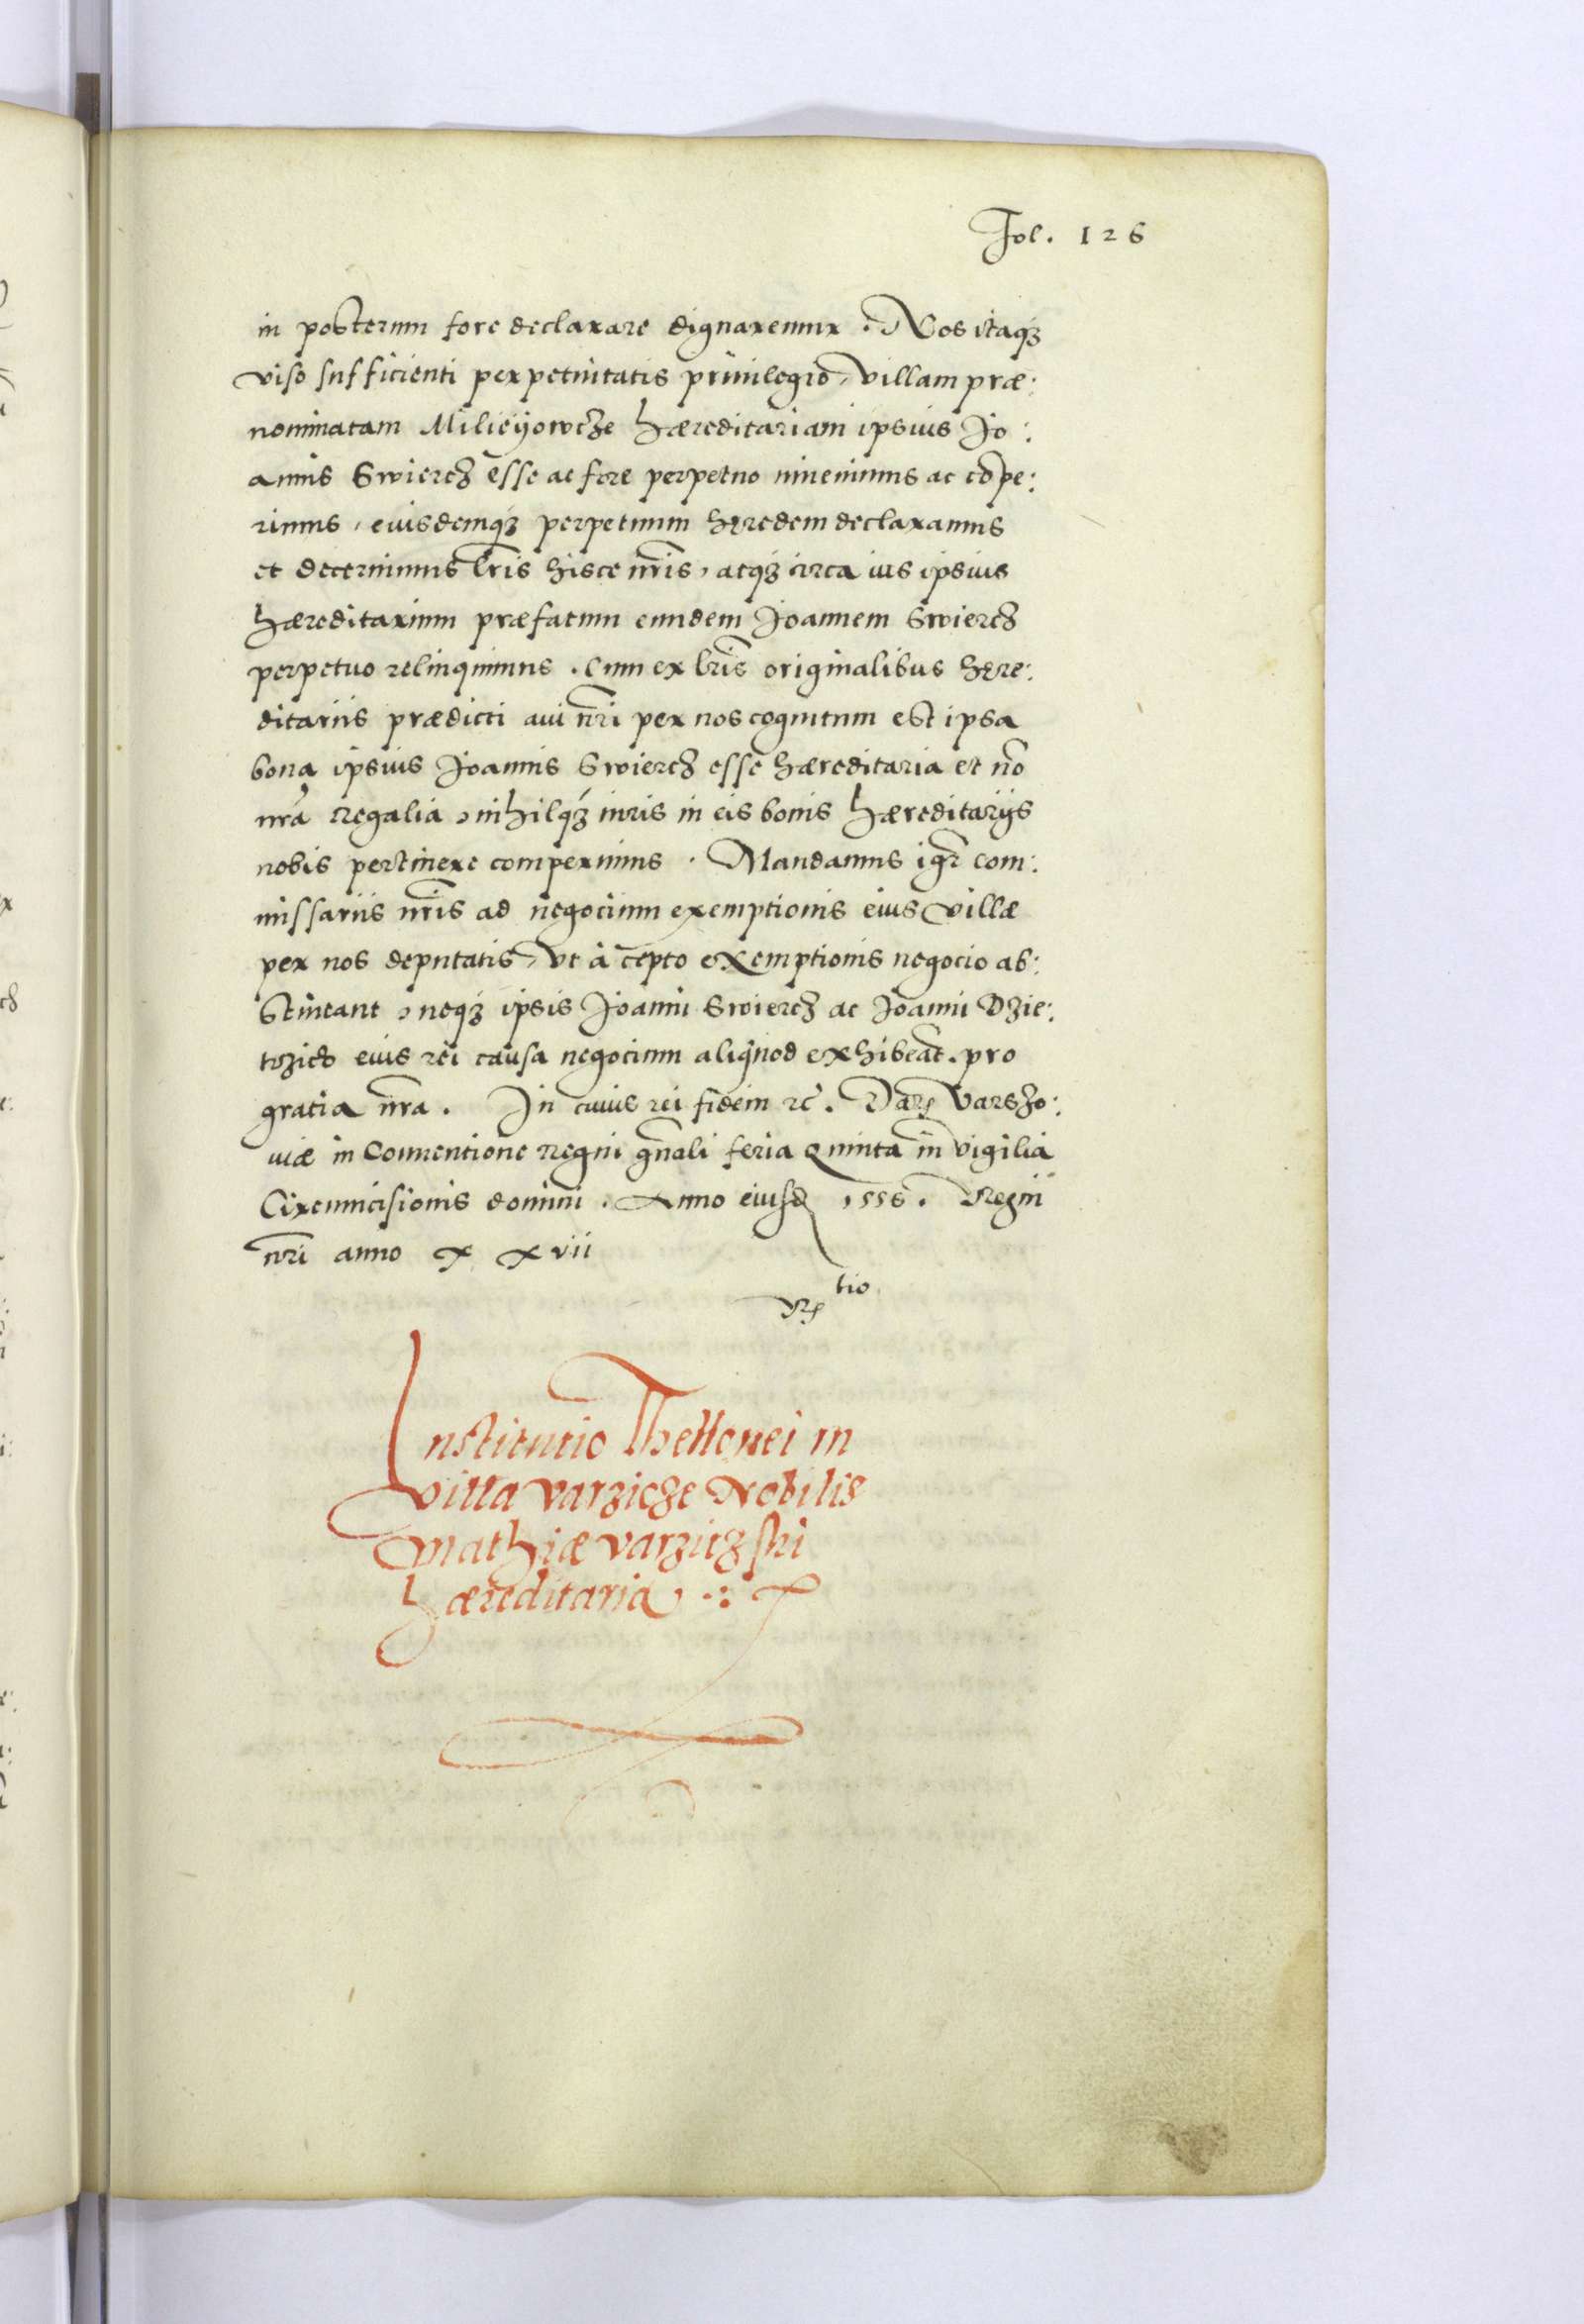 Fol. 126
in posterum fore declarare dignaremur. Nos itaqz
viso sufficienti perpetuitatis priuilegio, villam præ:
nominatam Miliciyowcze hæreditariam ipsius Jo:
annis Swiercz esse ac fore perpetuo inuenimus ac cōpe:
rimus, euisdemqz perpetuum hęredem declaramus
et decernimus lr̃is hisce nr̃is, atqz circa ius ipsius
hæreditarium præfatum eundem Joannem Swiercz
perpetuo relinquimus. Cum ex lr̃is originalibus hęre:
ditariis prædicti aui nr̃i per nos cognitum est ipsa
bona ipsius Joannis Swiercz esse hæreditaria et nõ
nr̃a regalia, nihilqz iuris in eis bonis hæreditariis
nobis pertinere comperimus. Mandamus igr̃ com:
missariis nr̃is ad negocium exemptionis eius villæ
per nos deputatis, vt à cepto exemptionis negocio ab:
stineant, neqz ipsis Joanni Swiercz ac Joanni Dzie:
eius rei causa negocium aliquod exhibeãt. pro
gratia nr̃a. In cuius rei fidem rc̃. Datę Varszo:
uiæ in Conuentione Regni gñali feria quinta in vigilia
Circumcisionis domini. Anno eiusd 1556. Regni
nr̃i anno xxvii
Rę tio
Institutio Thellonei in
villa varzicze Nobilis
Mathiæ varziczski
hæreditaria